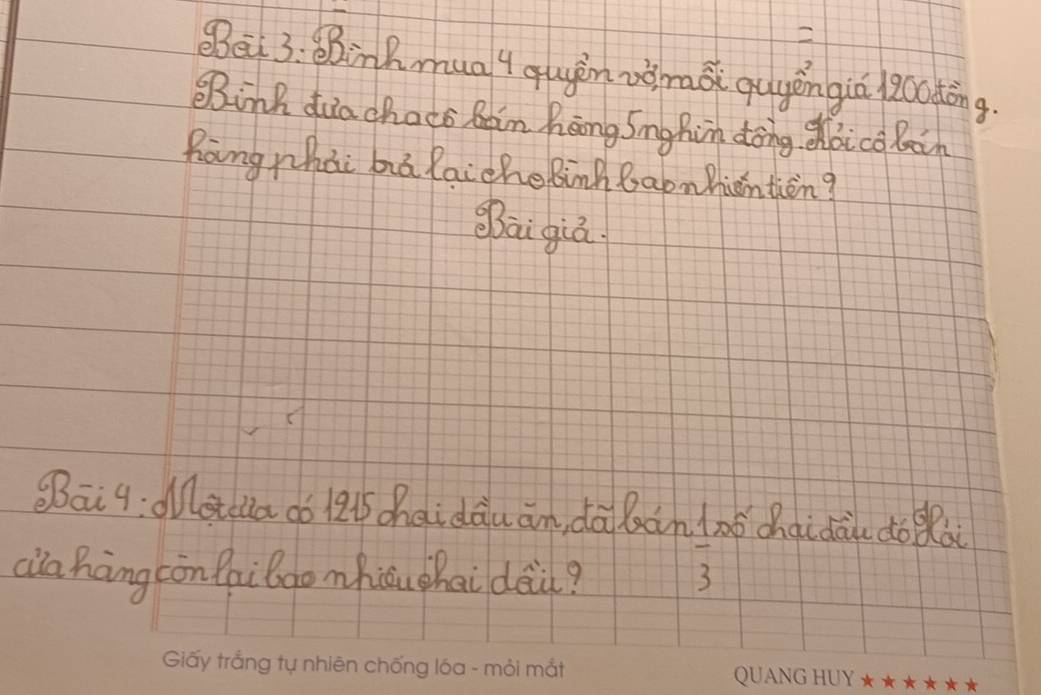 Bài 3. Bình mua 4 quyển vở, mỗi quyển giá 1200 đồng.
Bình đưa cha cô bán hàng 5 nghìn đồng. Hỏi cô bán
hàng phải trả lại cho Bình bao nhiên tiền?
Bài giả.
Bài 4: Một cửa có 1215 chai dầu ăn, đã bán 1/3 số chai dầu đó Hỏi
cửa hàng còn lại bao nhiêu chai dầu?
Giấy trắng tự nhiên chống lóa - mỏi mắt
QUANG HUY ★★★★★★